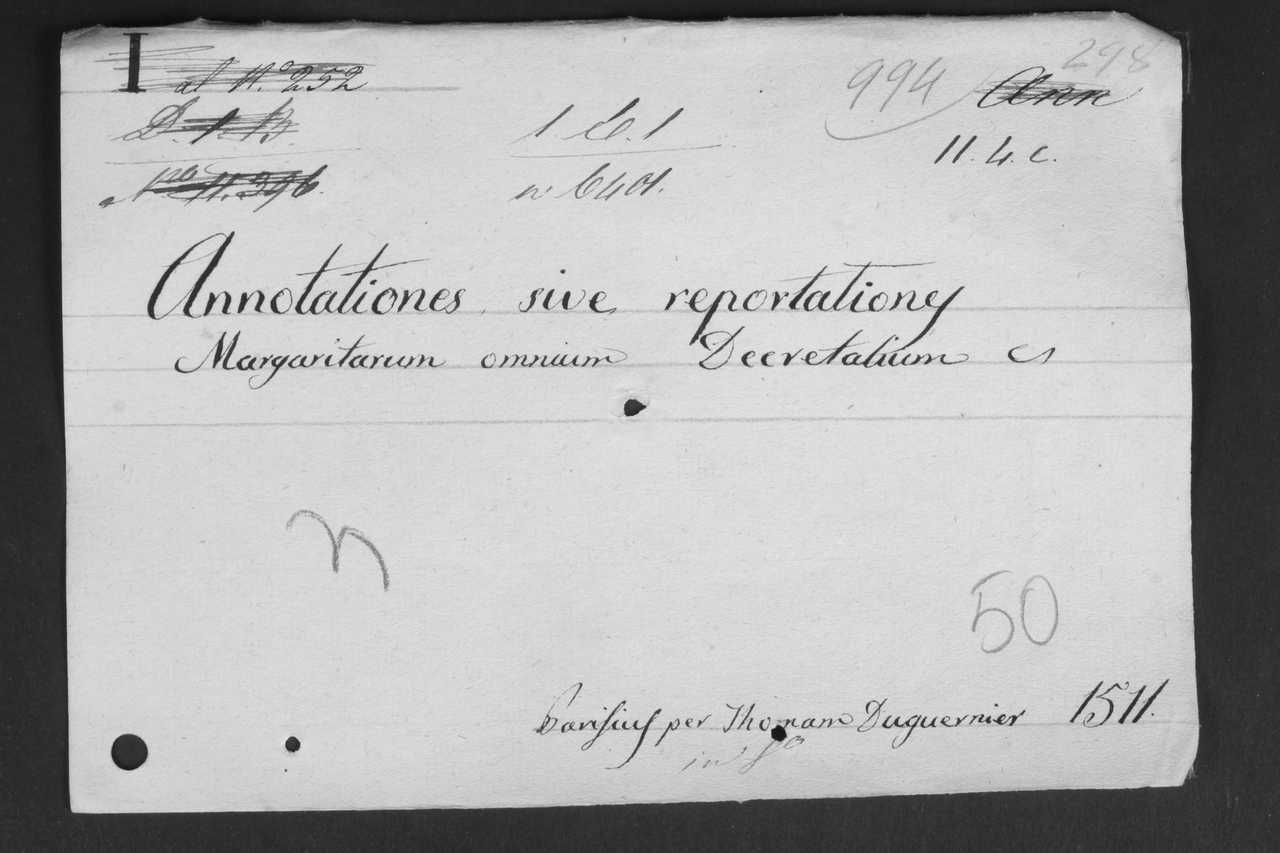 I al N.º 252
298
994 Ann
D. 1. B.
1. C. 1
11. 4. c.
N. 396.
Annotationes sive reportationes
Margaritarum omnium Decretalium
n
50
Parisius per Thomam Duguernier 1511.
in 8º